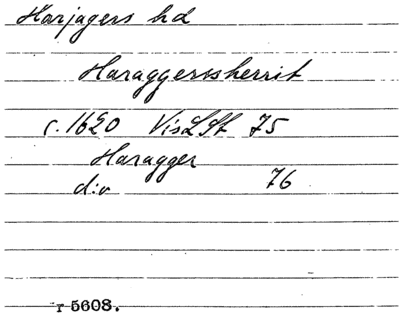 Harjagers hd
Haraggersherrit
c. 1620 VisLSt 75
Haragger
d:o 76
r 5608.